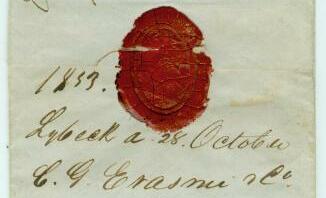 1853.
Lybeck a 28. October
C. G. Erasmi & Co